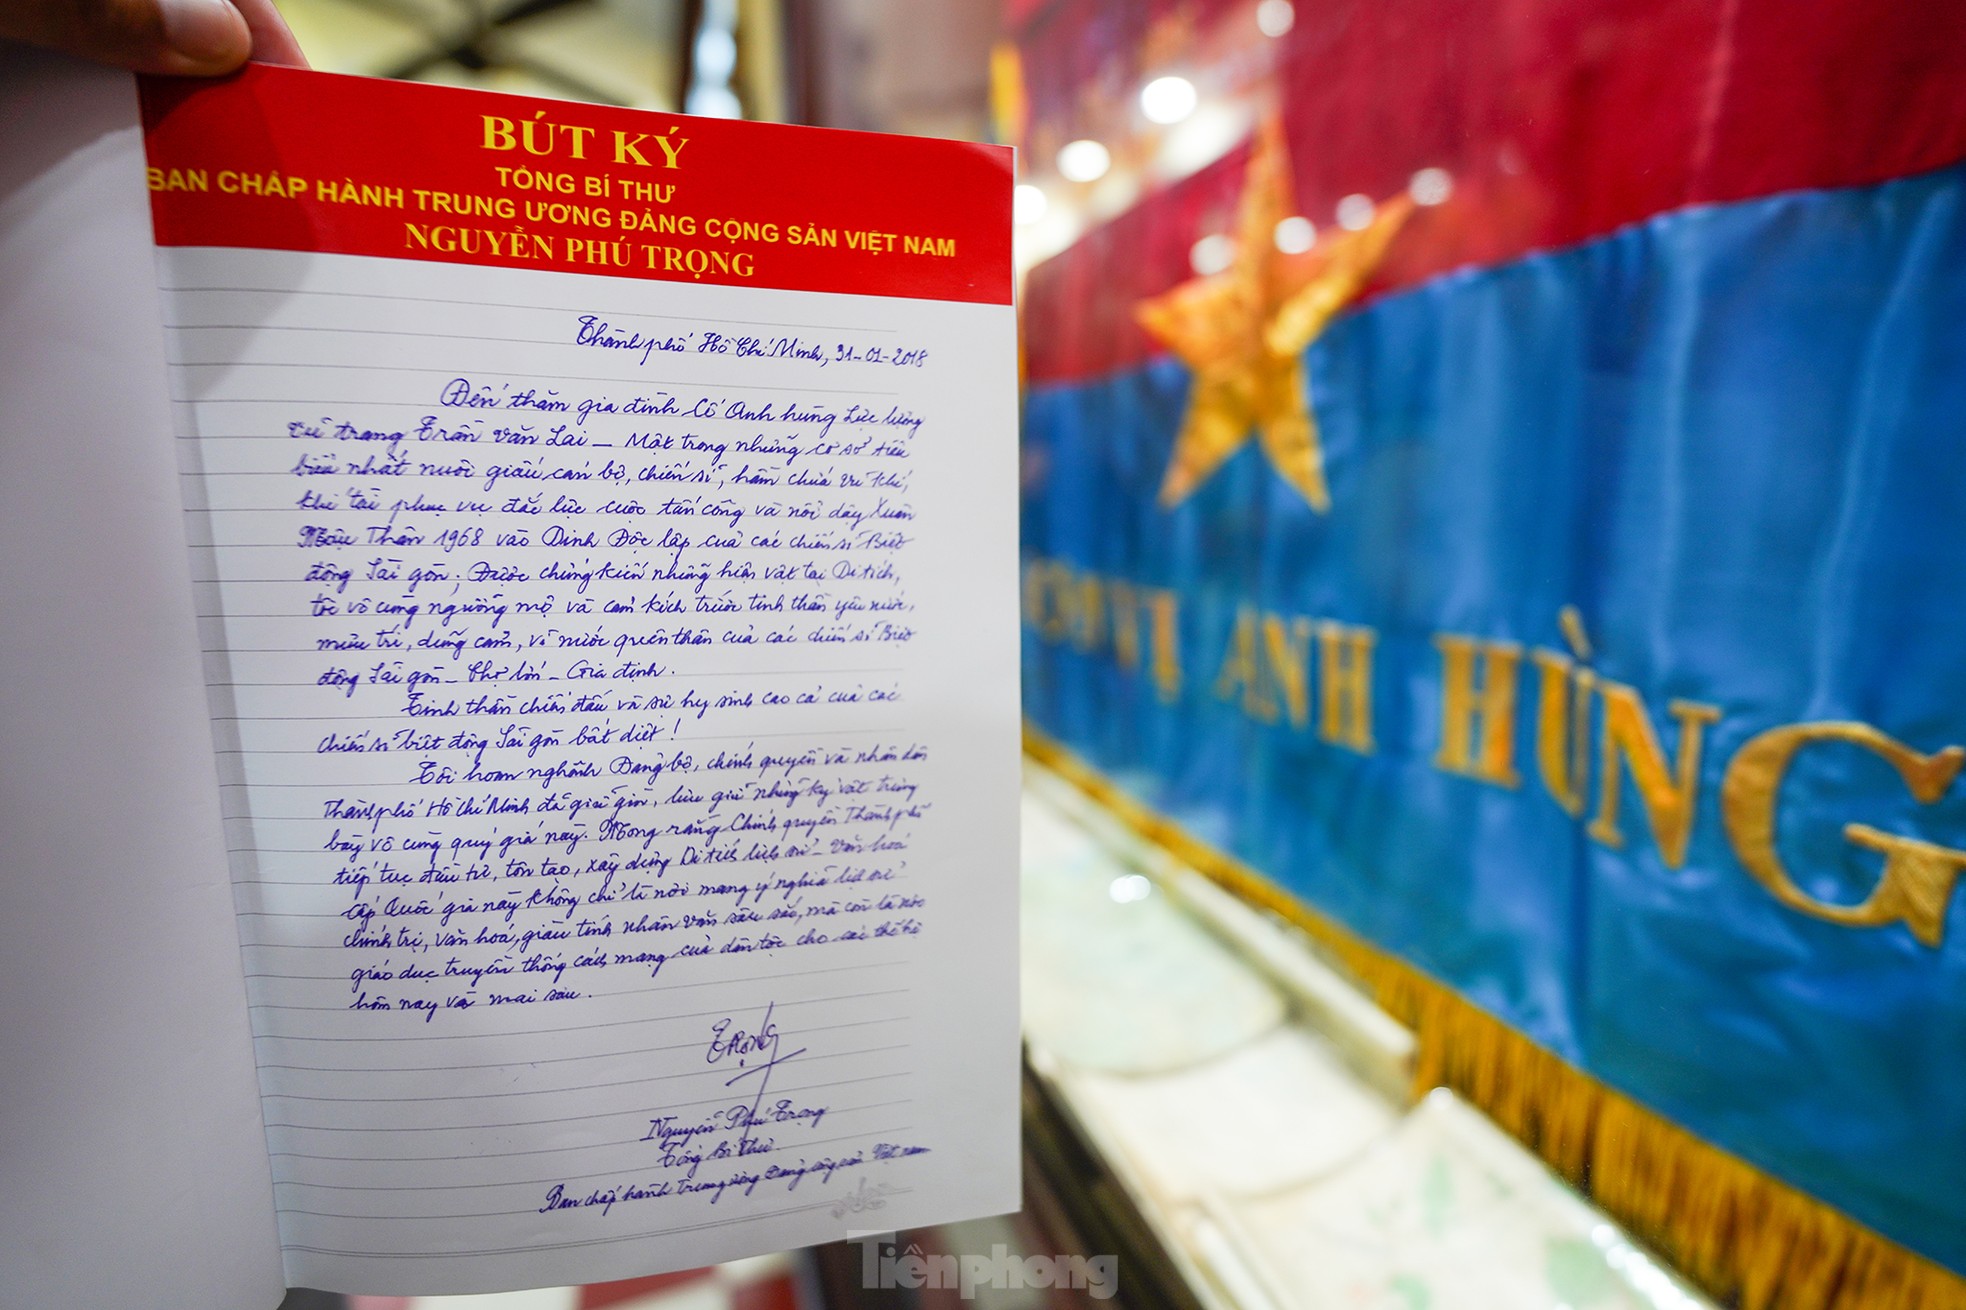 BÚT KÝ
TỔNG BÍ THƯ
BAN CHẤP HÀNH TRUNG ƯƠNG ĐẢNG CỘNG SẢN VIỆT NAM
NGUYỄN PHÚ TRỌNG
Thành phố Hồ Chí Minh, 31-01-2018
Đến thăm gia đình Cố Anh hùng Lực lượng
vũ trang Trần Văn Lai - Một trong những cơ sở tiêu
biểu nhất nuôi giấu cán bộ, chiến sĩ, hầm chứa vũ khí,
khí tài phục vụ đắc lực cuộc tấn công và nổi dậy Xuân
Mậu Thân 1968 vào Dinh Độc lập của các chiến sĩ Biệt
động Sài gòn; Được chứng kiến những hiện vật tại Di tích,
tôi vô cùng ngưỡng mộ và cảm kích trước tinh thần yêu nước,
mưu trí, dũng cảm, vì nước quên thân của các chiến sĩ Biệt
động Sài gòn - Chợ lớn - Gia định.
Tinh thần chiến đấu và sự hy sinh cao cả của các
chiến sĩ biệt động Sài gòn bất diệt!
Tôi hoan nghênh Đảng bộ, chính quyền và nhân dân
Thành phố Hồ Chí Minh đã giữ gìn, lưu giữ những kỷ vật trưng
bày vô cùng quý giá này. Mong rằng Chính quyền Thành phố
tiếp tục đầu tư, tôn tạo, xây dựng Di tích lịch sử - Văn hoá
cấp Quốc gia này không chỉ là nơi mang ý nghĩa lịch sử
chính trị, văn hoá, giàu tính nhân văn sâu sắc, mà còn là nơi
giáo dục truyền thống cách mạng của dân tộc cho các thế hệ
hôm nay và mai sau.
Trọng
Nguyễn Phú Trọng
Tổng Bí Thư
Ban chấp hành trung ương Đảng cộng sản Việt nam
VỊ ANH HÙNG
Tiênphong